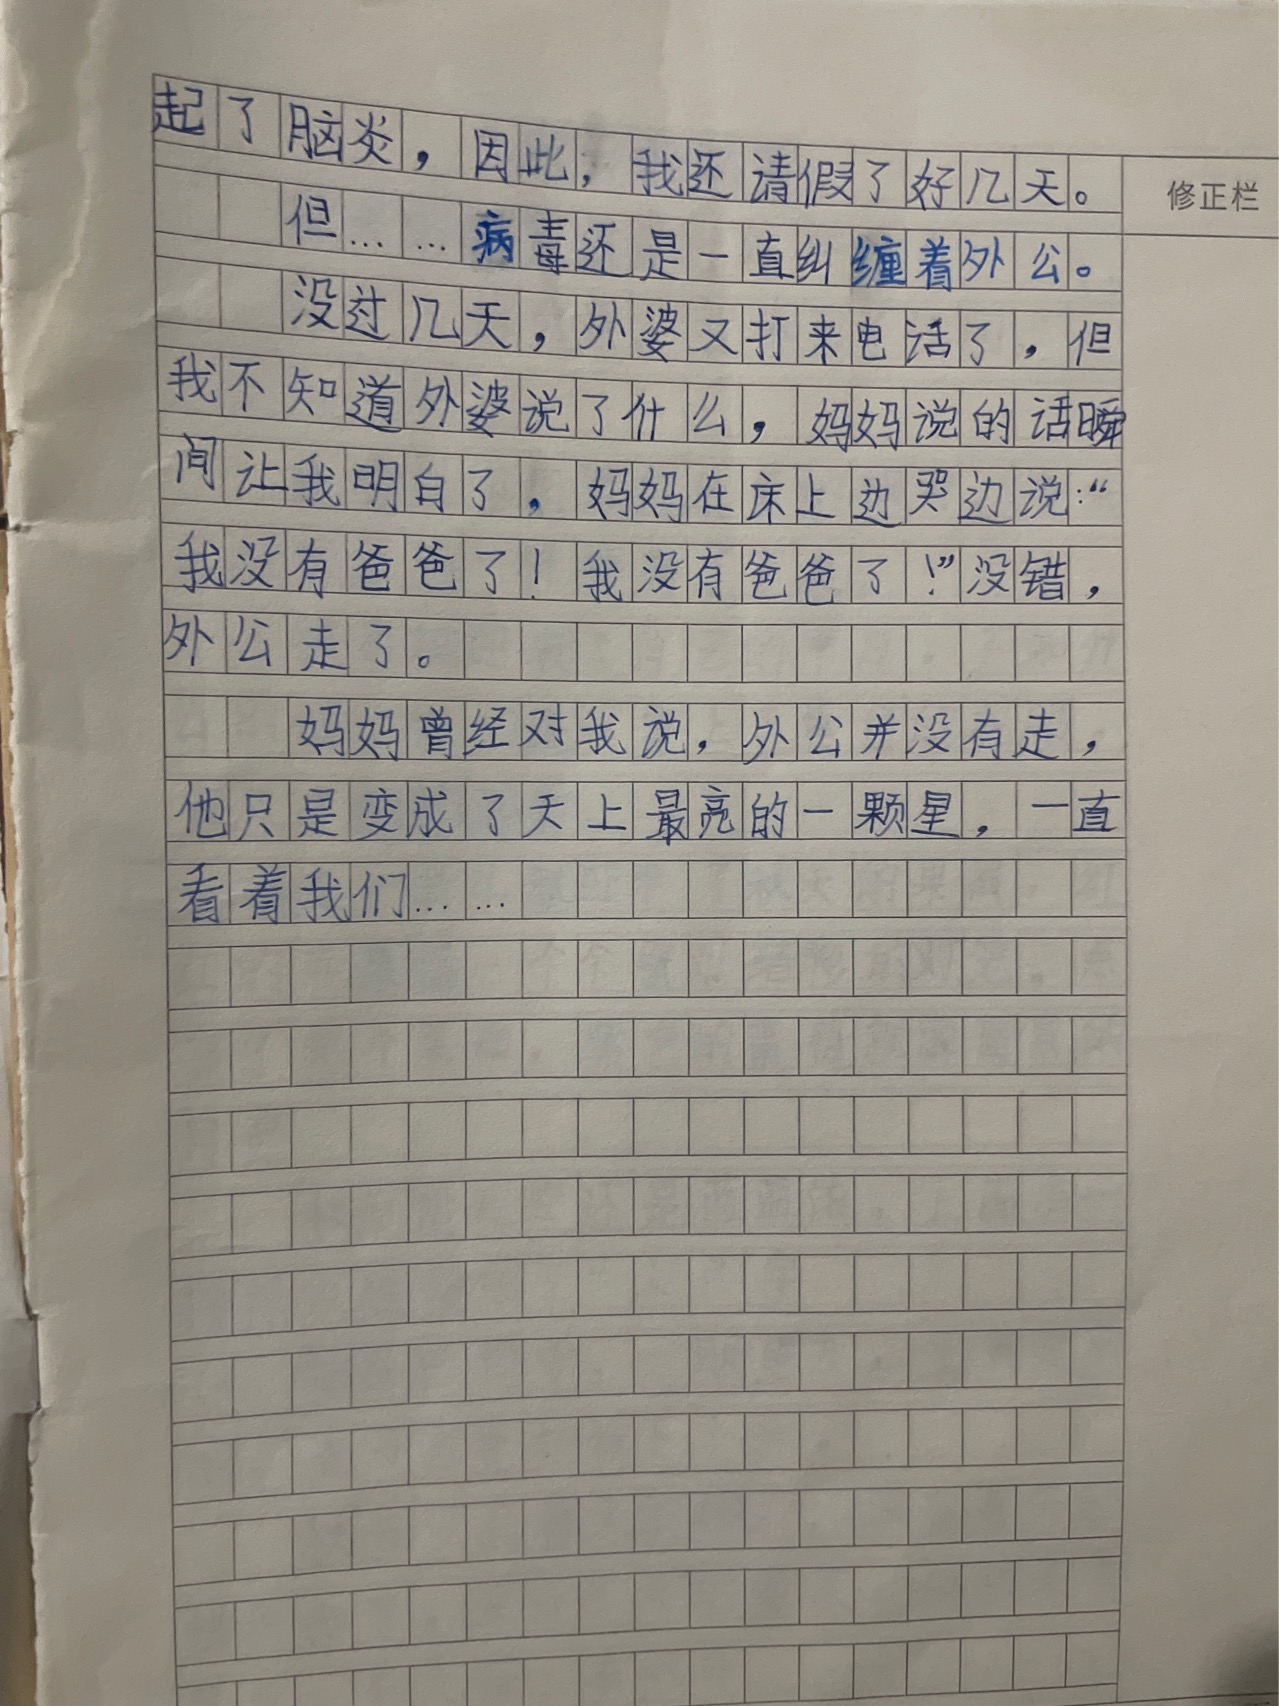 起了脑炎，因此，我还请假了好几天。
修正栏
但……病毒还是一直纠缠着外公。
没过几天，外婆又打来电话了，但
我不知道外婆说了什么，妈妈说的话瞬
间让我明白了，妈妈在床上边哭边说：“
我没有爸爸了！我没有爸爸了！”没错，
外公走了。
妈妈曾经对我说，外公并没有走，
他只是变成了天上最亮的一颗星，一直
看着我们……